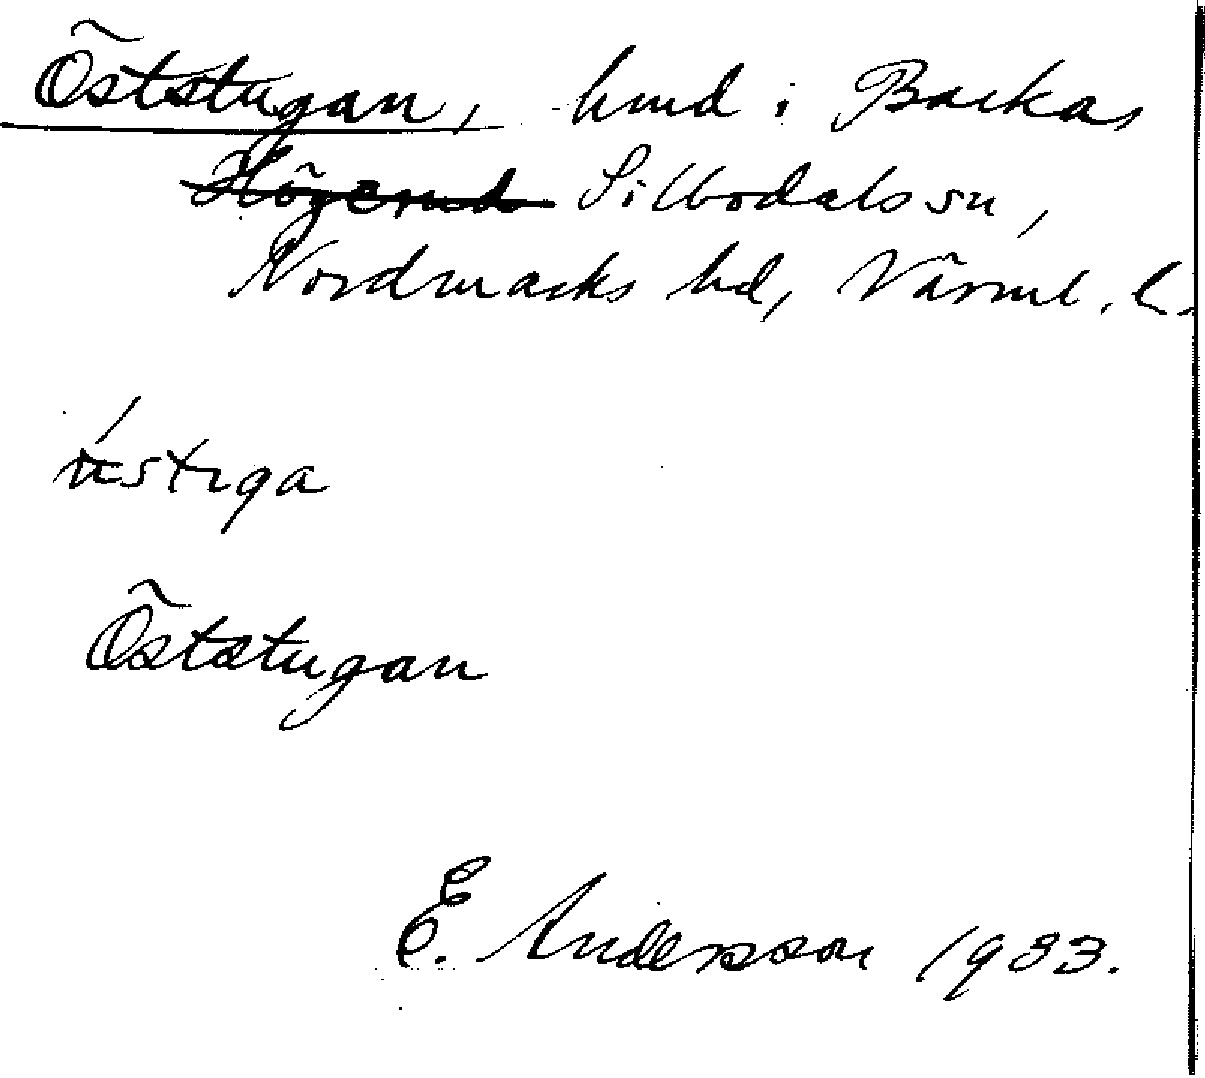 Öststugan, hmd i Backa,
Högerud Silbodals sn,
Nordmarks hd, Värml. l.
Öststugan
E. Andersson 1933.